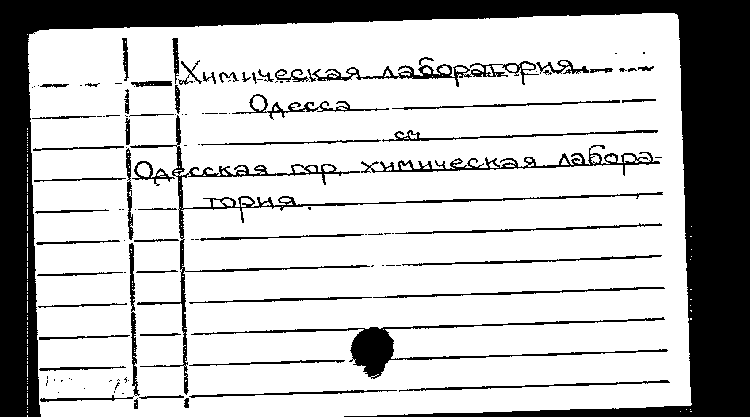 Химическая лаборатория.
Одесса
см
Одесская гор. химическая лабора-
тория.